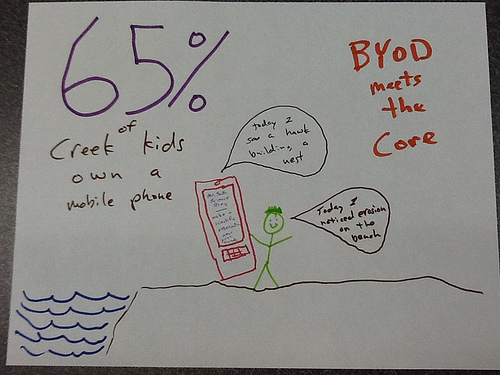 65%
of
Creek kids
own a
mobile phone
BYOD
meets
the
Core
today I
saw a hawk
building a
nest
Today I
noticed erosion
on the
beach